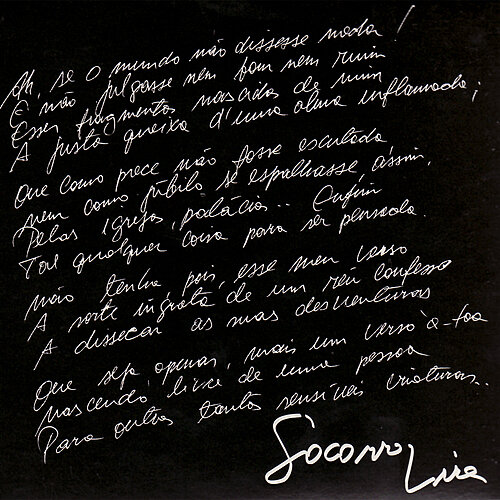 Ah, se o mundo não dissesse nada!
E não julgasse nem bom nem ruim
Esses fragmentos nascidos de mim
A justa queixa d'uma alma inflamada;
Que como prece não fosse escutada
nem como júbilo se espalhasse, assim,
Pelas igrejas, palácios... Enfim
Tal qualquer coisa para ser pensada.
não tenha, pois, esse meu verso
A sorte ingrata de um réu confesso
A dissecar as suas desventuras
Que seja, apenas, mais um verso à-toa
nascendo livre de uma pessoa
Para outras tantas sensíveis criaturas..
Socorro Lira